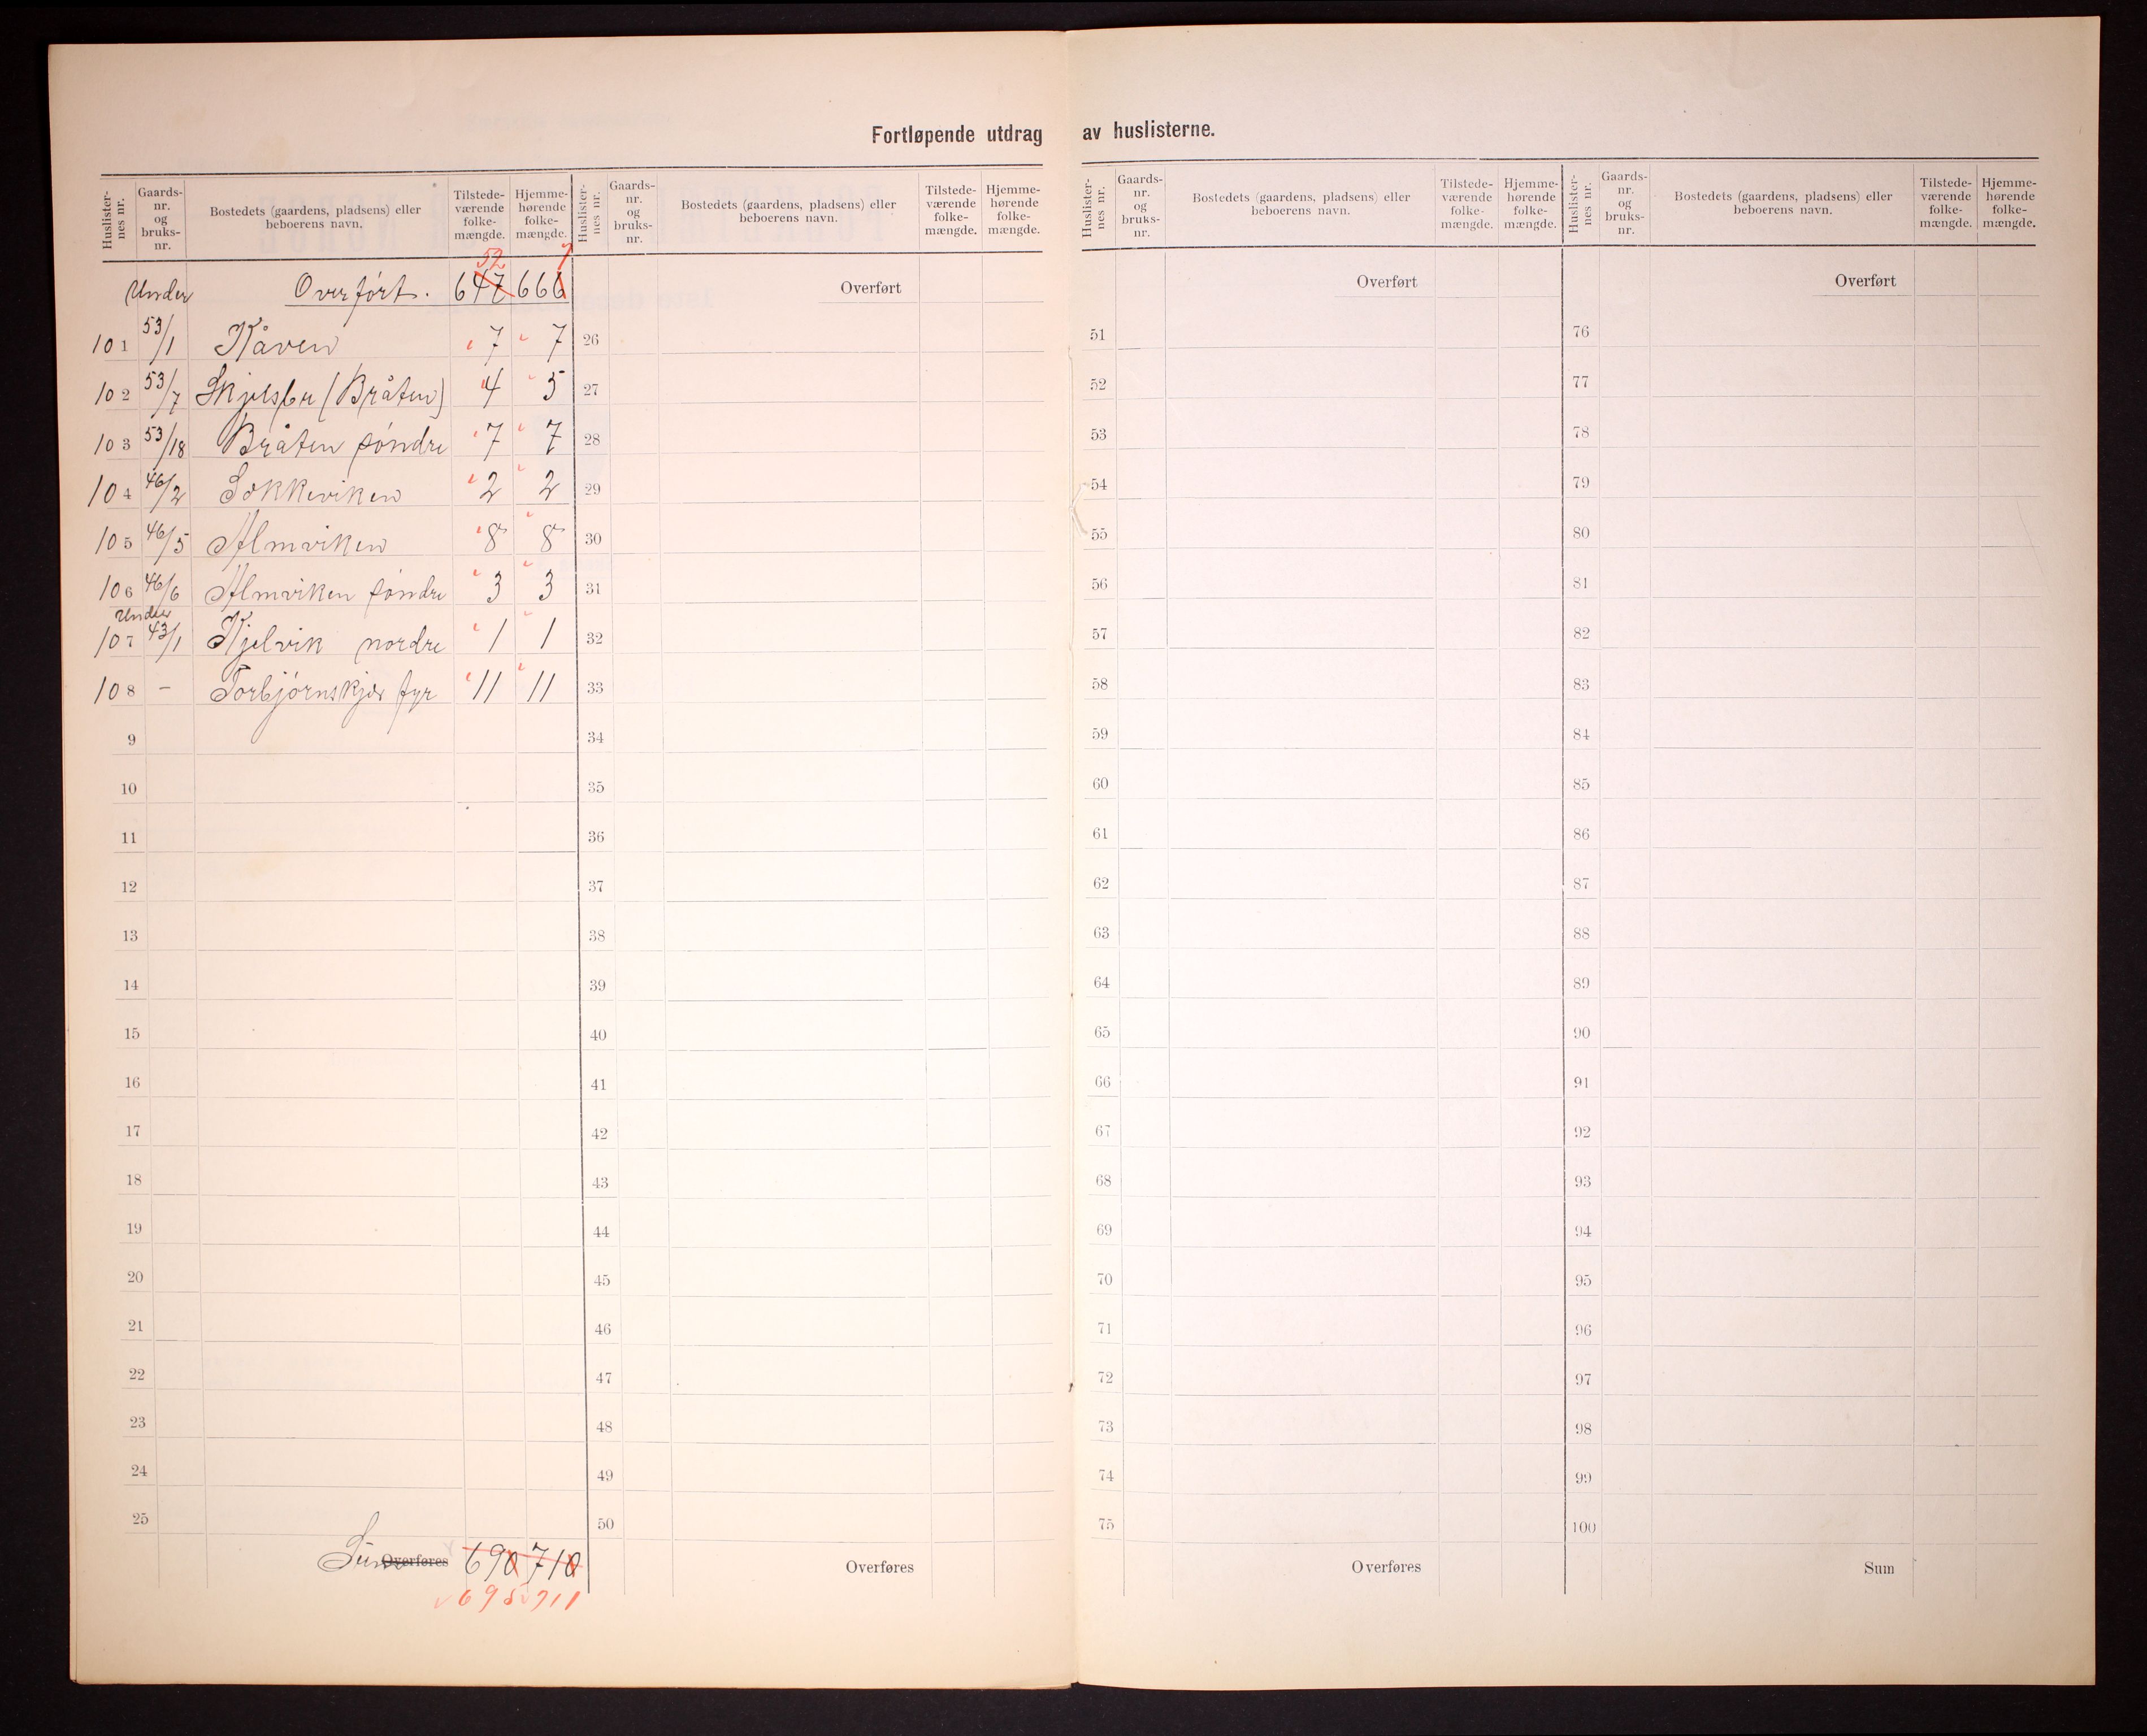 Fortløpende utdrag av huslisterne.
Huslister-nes nr. Gaards-nr. og bruks-nr. Bostedets (gaardens, pladsens) eller beboerens navn. Tilstede-værende folke-mængde. Hjemme-hørende folke-mængde.
Huslister-nes nr. Gaards-nr. og bruks-nr. Bostedets (gaardens, pladsens) eller beboerens navn. Tilstede-værende folke-mængde. Hjemme-hørende folke-mængde.
Huslister-nes nr. Gaards-nr. og bruks-nr. Bostedets (gaardens, pladsens) eller beboerens navn. Tilstede-værende folke-mængde. Hjemme-hørende folke-mængde.
Huslister-nes nr. Gaards-nr. og bruks-nr. Bostedets (gaardens, pladsens) eller beboerens navn. Tilstede-værende folke-mængde. Hjemme-hørende folke-mængde.
52 7
Under Overført. 647 666
101 53/1 Kåven 7 7
102 53/7 (Bråten) 4 5
103 53/18 Bråten søndre 7 7
104 46/2 Sokkeviken 2 2
105 46/5 Almviken 8 8
106 46/6 Almviken søndre 3 3
Under
107 43/1 Kjelvik nordre 1 1
108 – Torbjørnskjær fyr 11 11
9
10
11
12
13
14
15
16
17
18
19
20
21
22
23
24
25
Sum Overføres 690 710
695 711
Overført
26
27
28
29
30
31
32
33
34
35
36
37
38
39
40
41
42
43
44
45
46
47
48
49
50
Overføres
Overført
51
52
53
54
55
56
57
58
59
60
61
62
63
64
65
66
67
68
69
70
71
72
73
74
75
Overføres
Overført
76
77
78
79
80
81
82
83
84
85
86
87
88
89
90
91
92
93
94
95
96
97
98
99
100
Sum